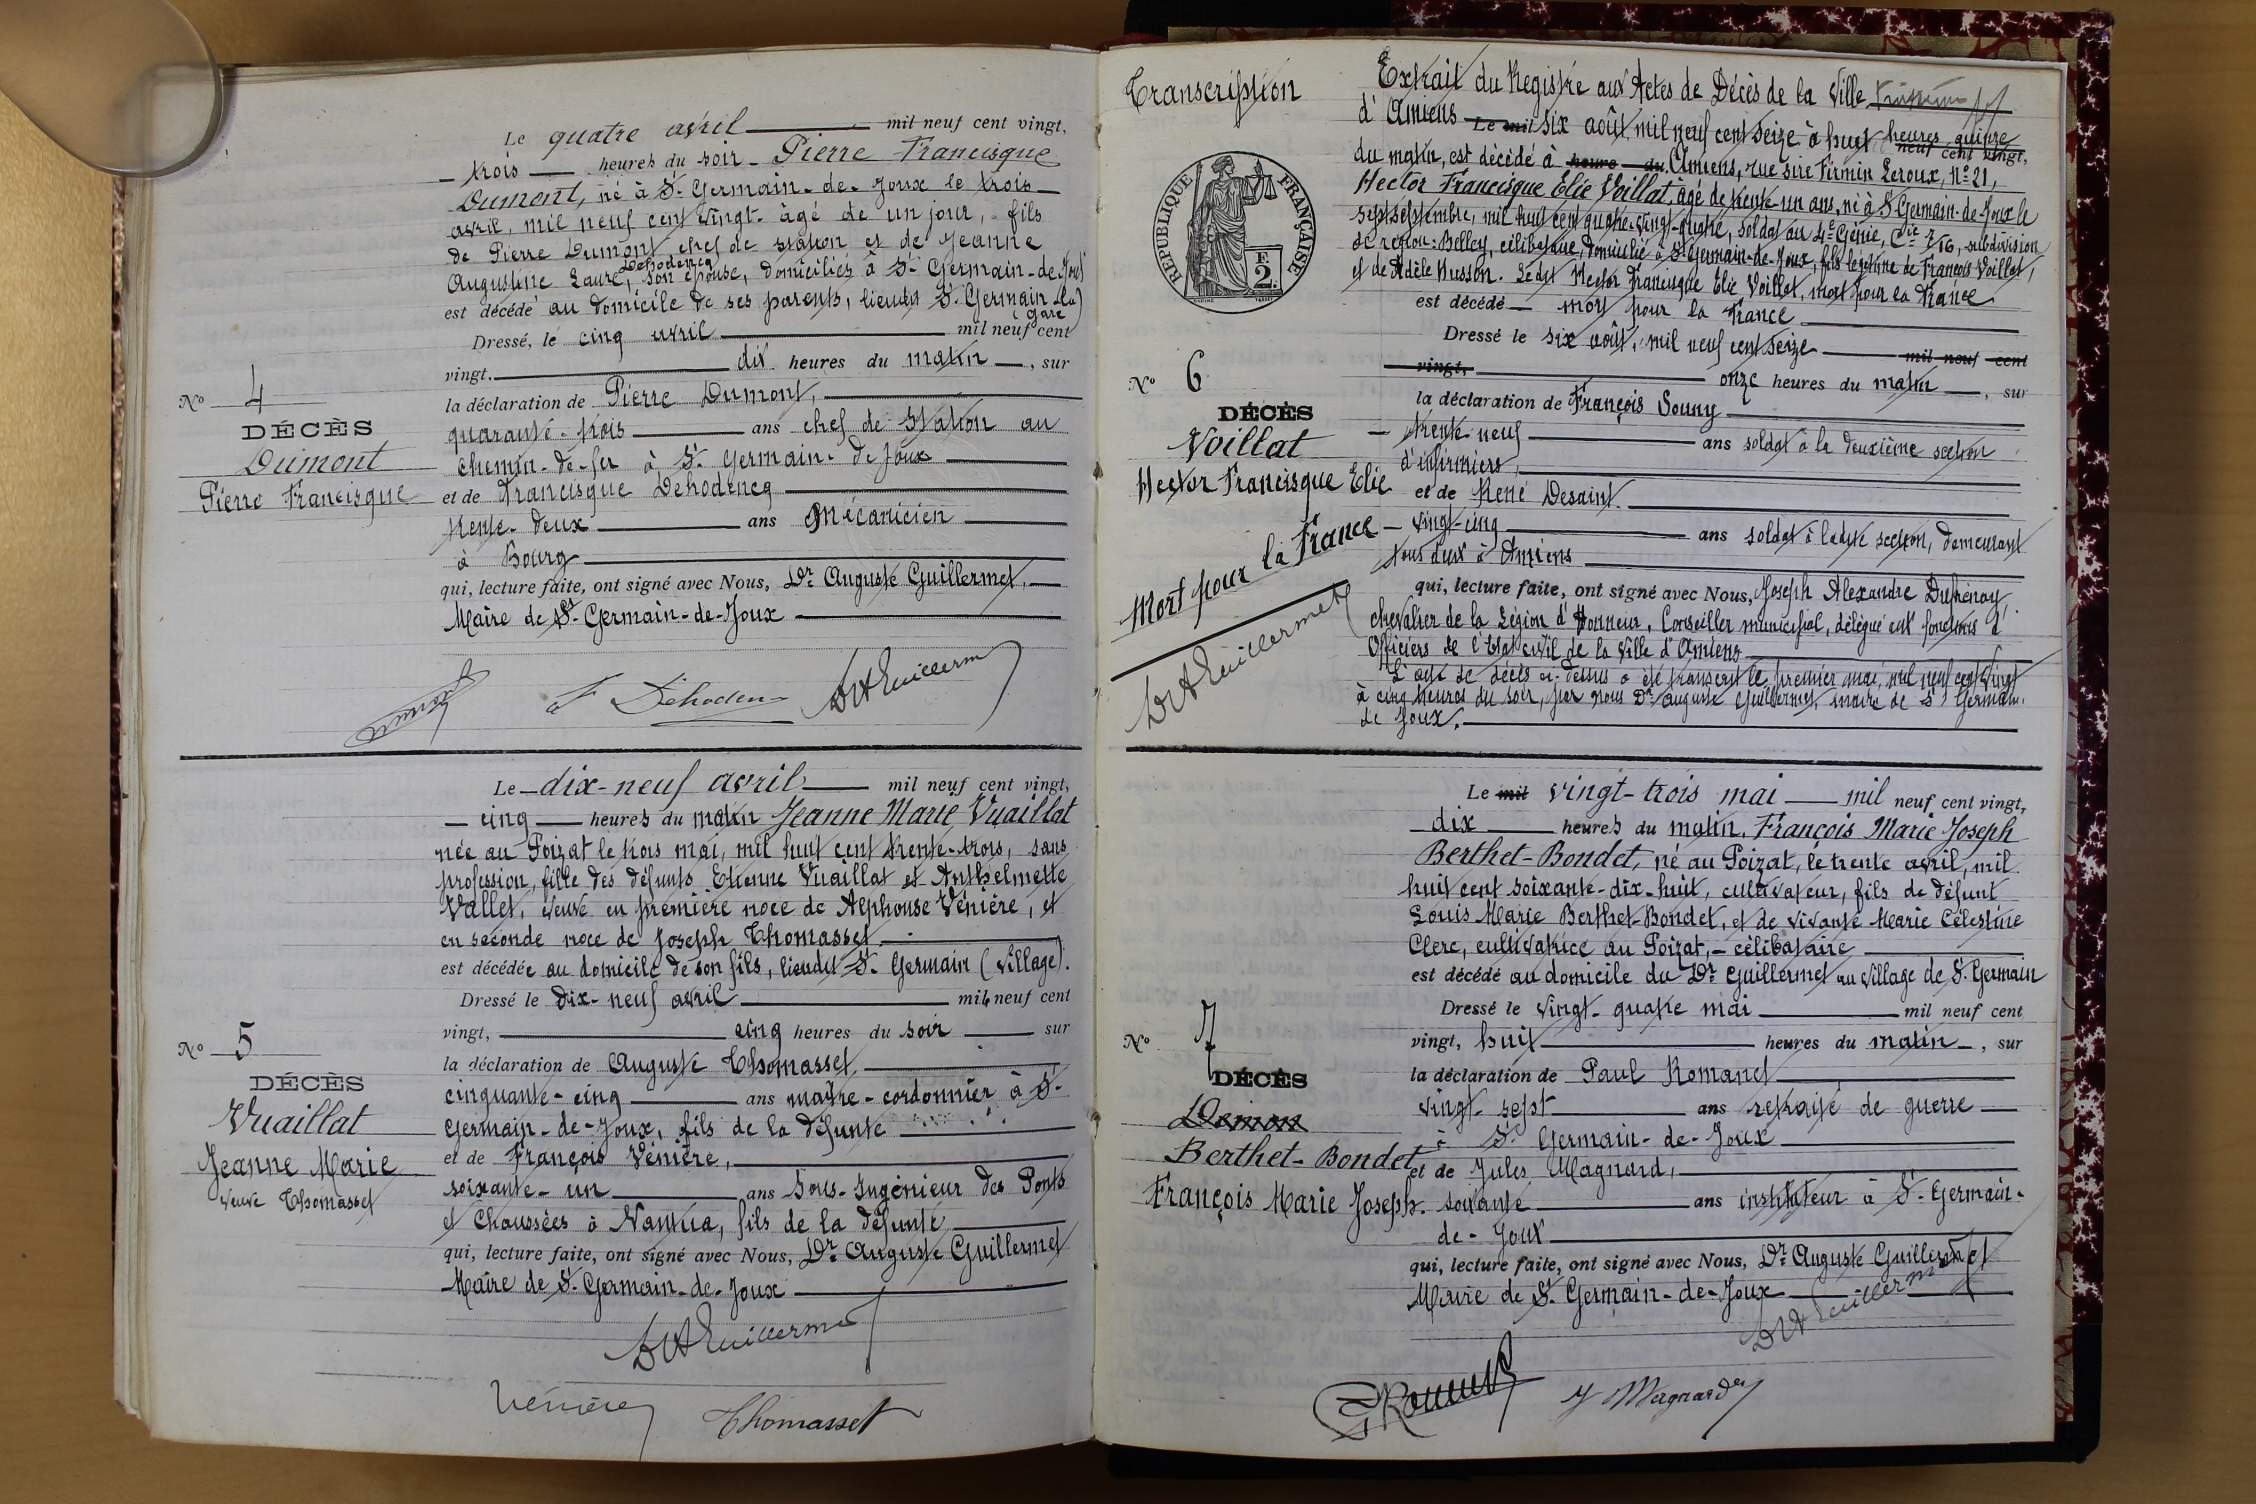 Le quatre avril mil neuf cent vingt,
trois heures du soir - Pierre Francisque
Dumont, né à St. Germain-de-Joux le trois
avril, mil neuf cent vingt. âgé de un jour, fils
de Pierre Dumont chef de station et de Jeanne
Dehodencq
Augustine Laure, son épouse, domiciliés à St. Germain-de-Joux
est décédé au domicile de ses parents, lieudit St. Germain (La
gare)
Dressé, le cinq avril mil neuf cent
vingt, dix heures du matin, sur
la déclaration de Pierre Dumont,
quarante-trois ans chef de station au
chemin-de-fer à St. Germain-de Joux
et de Francisque Dehodencq
trente-deux ans Mécanicien
à Bourg
qui, lecture faite, ont signé avec Nous, Dr. Auguste Guillermet,
Maire de St. Germain-de-Joux
No 4
DÉCÈS
Dumont
Pierre Francisque
F Dehodencq DrAGuillermet
Le dix-neuf avril mil neuf cent vingt,
cinq heures du matin Jeanne Marie Vuaillat
née au Poizat le trois mai, mil huit cent trente-trois, sans
profession, fille des défunts Etienne Vuaillat et Anthelmette
Vallet, veuve en première noce de Alphonse Vénière, et
en seconde noce de Joseph Thomasset
est décédée au domicile de son fils, lieudit St. Germain (Village).
Dressé le dix-neuf avril mil neuf cent
vingt, cinq heures du soir sur
la déclaration de Auguste Thomasset,
cinquante-cinq ans maître-cordonnier à St.
Germain-de-Joux, fils de la défunte
et de François Vénière,
soixante-un ans Sous-Ingénieur des Ponts
et Chaussées à Nantua, fils de la défunte
qui, lecture faite, ont signé avec Nous, Dr. Auguste Guillermet
Maire de St. Germain-de-Joux
No 5
DÉCÈS
Vuaillat
Jeanne Marie
Veuve Thomasset
DrAGuillermet
Vénière Thomasset
Transcription
Extrait du Registre aux Actes de Décès de la Ville
d'Amiens Le mil six août mil neuf cent seize à huit heures quinze
neuf cent vingt,
du matin, est décédé à heure du Amiens, rue sire Firmin Leroux, No 21,
Hector Francisque Elie Voillat, âgé de trente-un ans, né à St Germain-de-Joux le
sept septembre, mil huit cent quatre-vingt-quatre, soldat au 4e Génie, Cie 7/16, subdivision
de région: Belley, célibataire, domicilié à St Germain-de-Joux, fils légitime de François Voillat,
et de Adèle Husson. Ledit Hector Francisque Elie Voillat, mort pour la France
est décédé mort pour la France
Dressé le six août, mil neuf cent seize mil neuf cent
vingt, onze heures du matin, sur
la déclaration de François Souny
trente-neuf ans soldat à la deuxième section
d'infirmiers,
et de René Desaint.
vingt-cinq ans soldat à ladite section, demeurant
tous deux à Amiens
qui, lecture faite, ont signé avec Nous, Joseph Alexandre Duthénoy,
chevalier de la Légion d'Honneur, Conseiller municipal, délégué aux fonctions d'
Officiers de l'état civil de la Ville d'Amiens
L'acte de décès ci-dessus a été transcrit le premier mai, mil neuf cent vingt
à cinq heures du soir, par nous Dr Auguste Guillermet, maire de St Germain-
de Joux.
No 6
DÉCÈS
Voillat
Hector Francisque Elie
Mort pour la France
DrAGuillermet
RÉPUBLIQUE FRANÇAISE
F.
2.
Le mil vingt-trois mai mil neuf cent vingt,
dix heures du matin, François Marie Joseph
Berthet-Bondet, né au Poizat, le trente avril, mil
huit cent soixante-dix-huit, cultivateur, fils de défunt
Louis Marie Berthet-Bondet, et de vivante Marie Célestine
Clerc, cultivatrice au Poizat, - célibataire
est décédé au domicile du Dr. Guillermet au Village de St. Germain
Dressé le vingt-quatre mai mil neuf cent
vingt, huit heures du matin, sur
la déclaration de Paul Romanet
vingt-sept ans retraité de guerre
à St. Germain-de-Joux
et de Jules Magnard,
soixante ans instituteur à St. Germain-
de-Joux
qui, lecture faite, ont signé avec Nous, Dr. Auguste Guillermet
Maire de St. Germain-de-Joux
No 7
DÉCÈS
Berthet-Bondet
François Marie Joseph.
DrAGuillermet
J Magnard